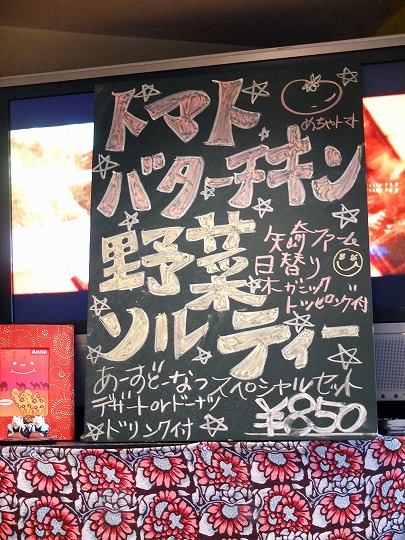 トマト
めちゃトマ
バターチキン
野菜
矢崎ファーム
日替り
オーガニック
トッピング付
ソルティー
あーすどーなつスペシャルセット
デザートorドーナツ
ドリンク付
¥850
Anna